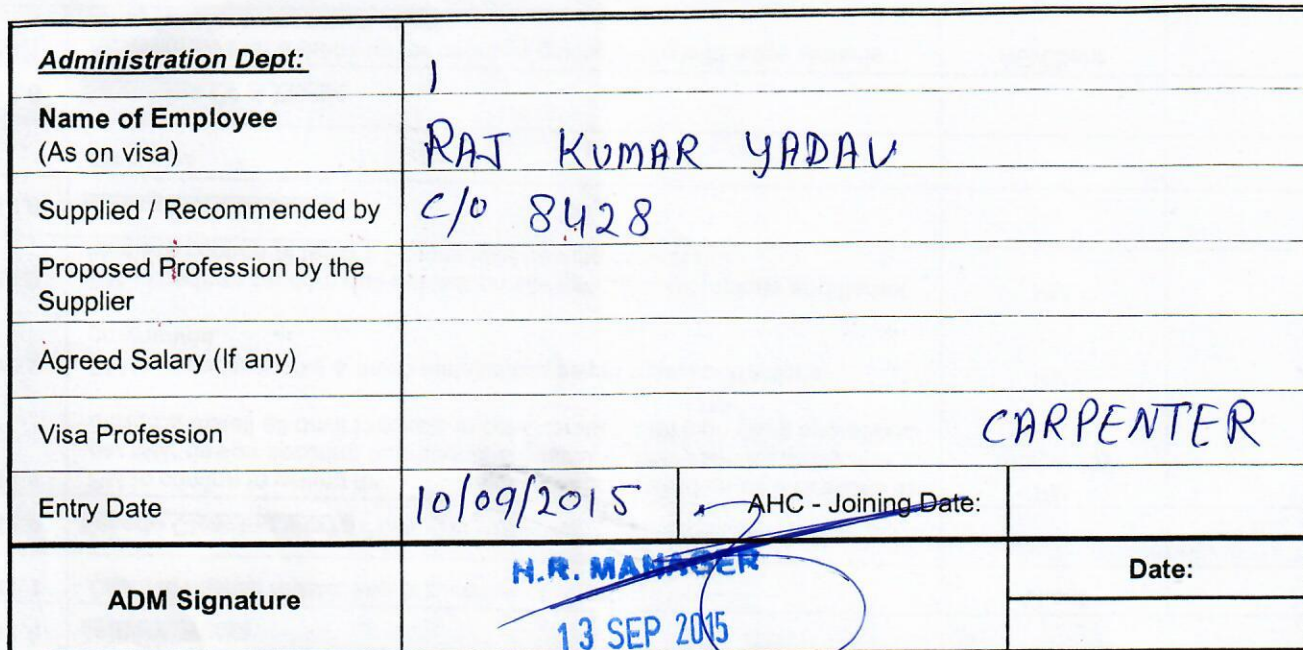 Administration Dept:
Name of Employee
(As on visa)
RAJ KUMAR YADAV
Supplied / Recommended by
C/o 8428
Proposed Profession by the
Supplier
Agreed Salary (If any)
Visa Profession
CARPENTER
Entry Date
10/09/2015
AHC - Joining Date:
ADM Signature
H.R. MANAGER
13 SEP 2015
Date: